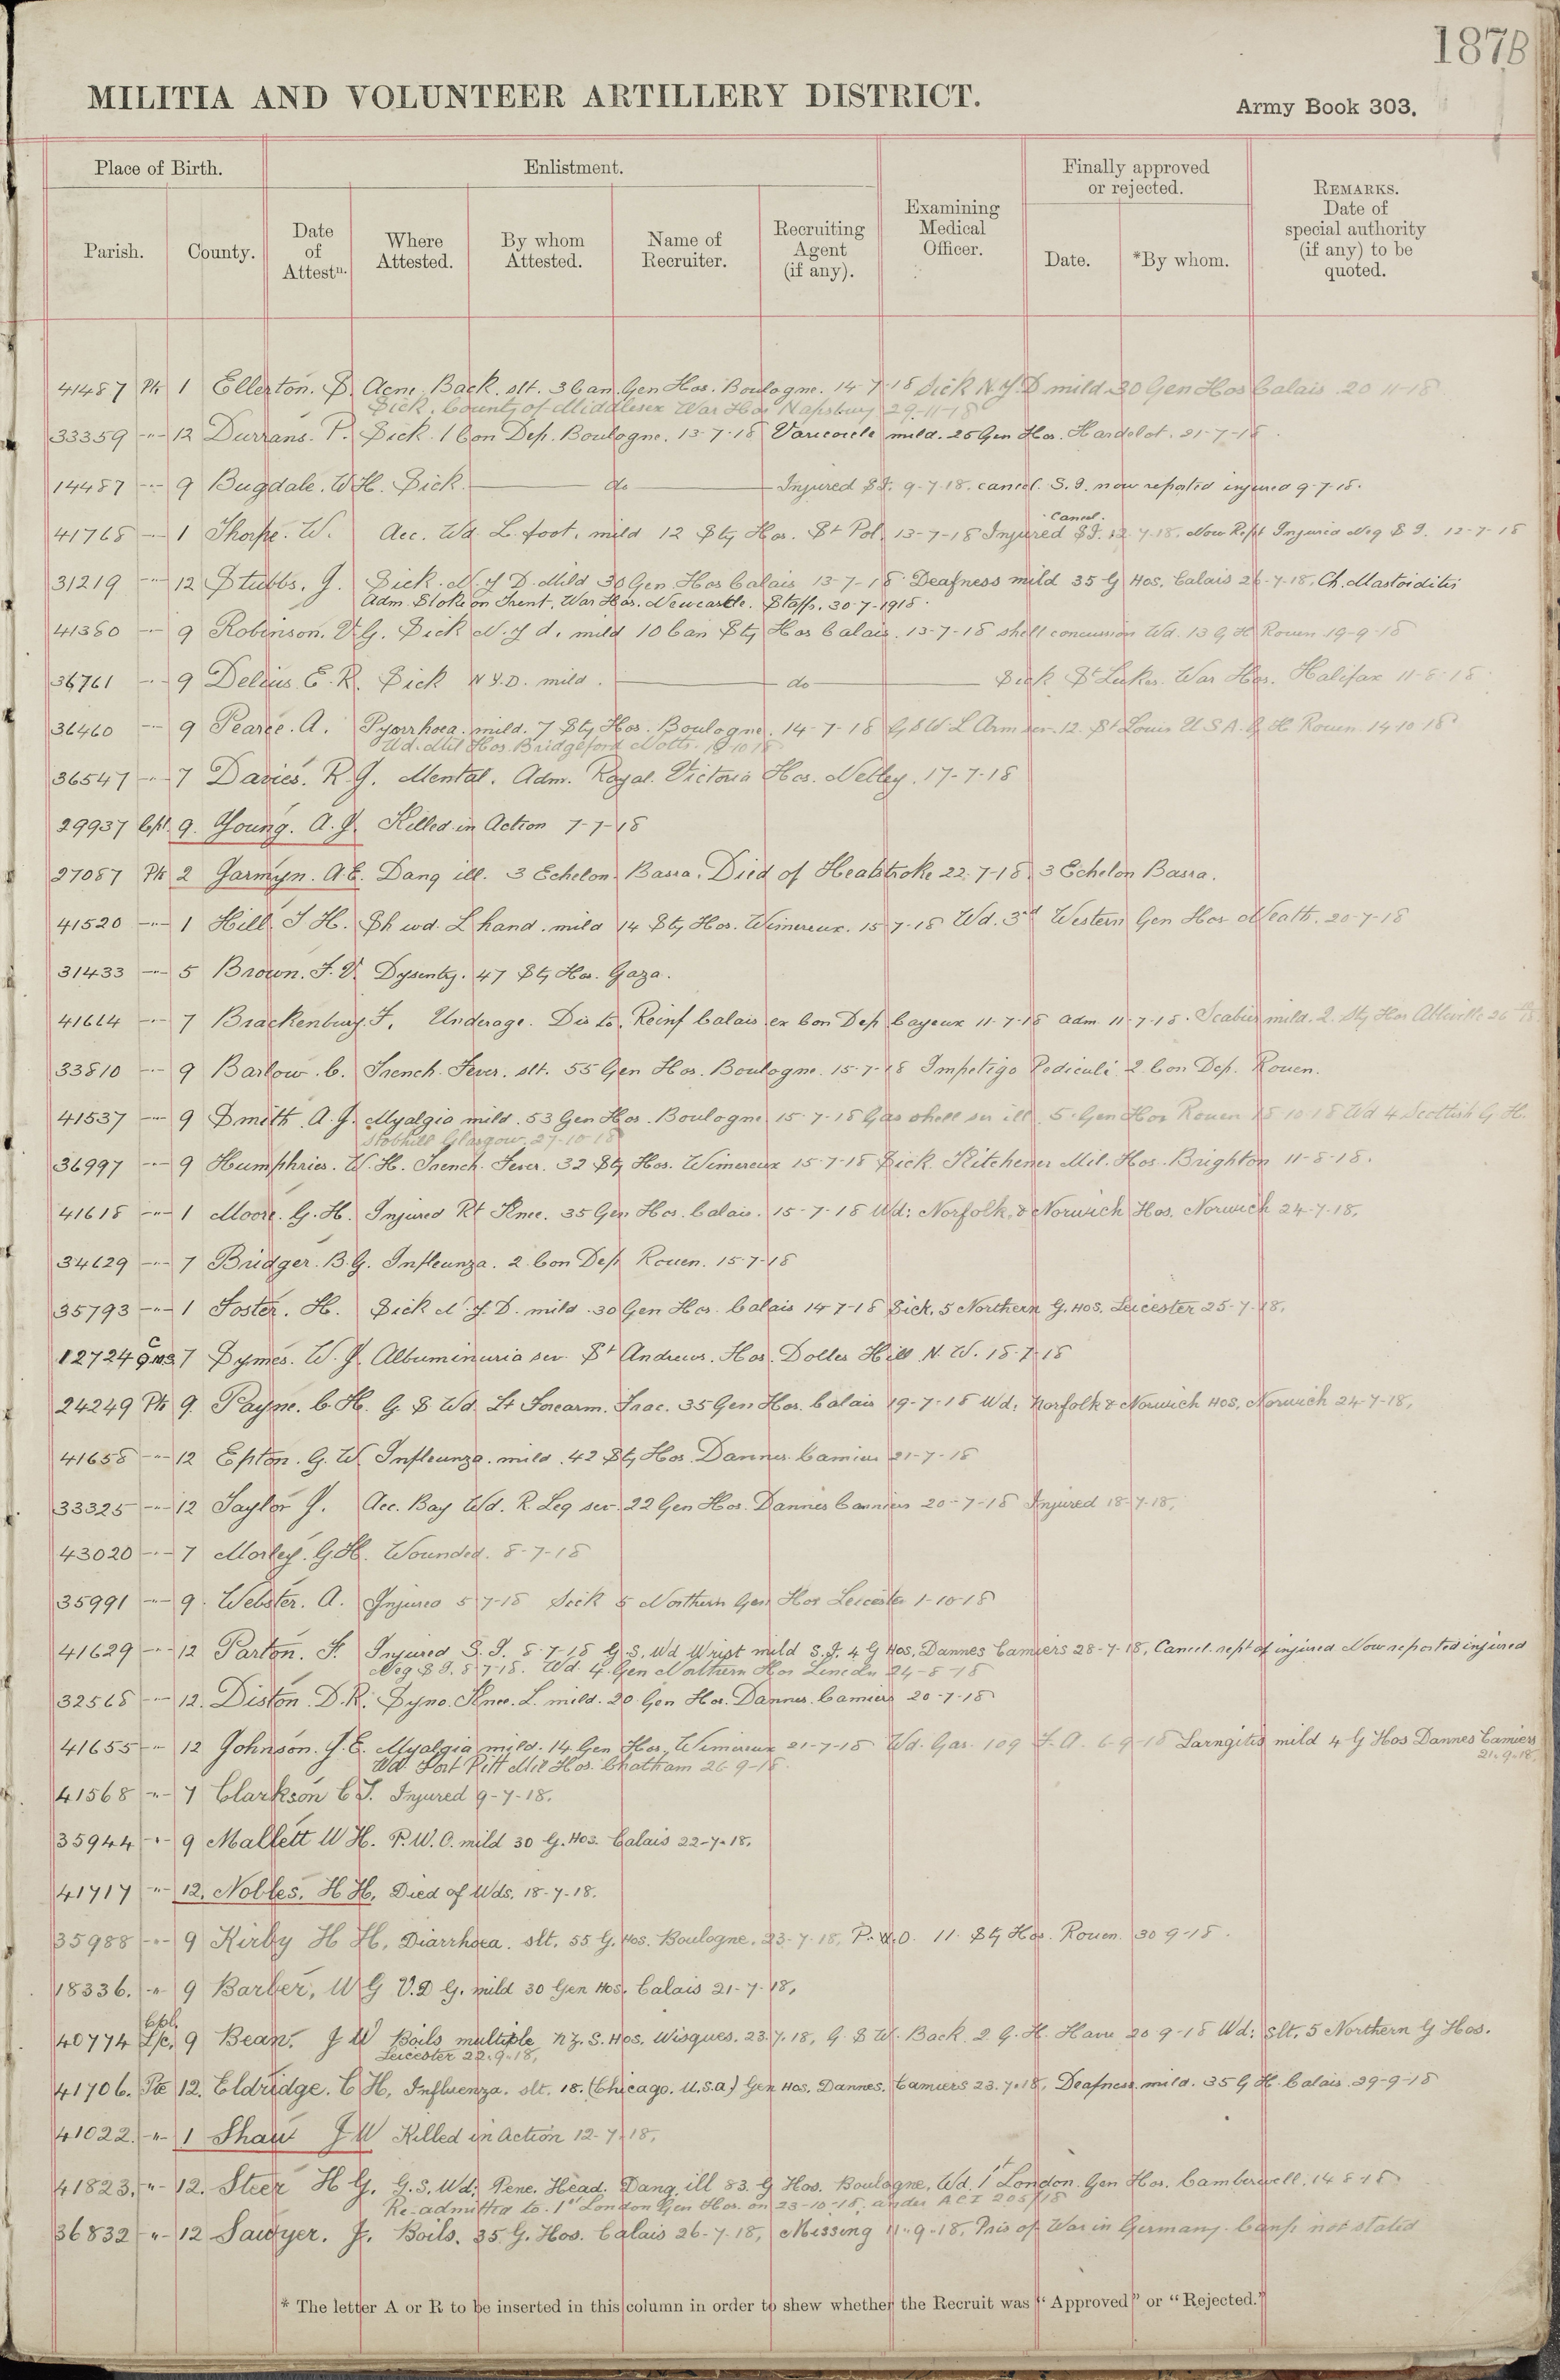 187B
MILITIA AND VOLUNTEER ARTILLERY DISTRICT.
Army Book 303.
Place of Birth.
Enlistment.
Finally approved
or rejected.
Parish.
County.
Date
of
Attestn.
Where
Attested.
By whom
Attested.
Name of
Recruiter.
Recruiting
Agent
(if any).
Examining
Medical
Officer.
Date.
*By whom.
REMARKS.
Date of
special authority
(if any) to be
quoted.
41487 Pte 1 Ellerton. S. Acne Back. slt. 3 Can Gen Hos. Boulogne. 14-7-18 Sick N.Y.D mild 30 Gen Hos Calais 20 11-18
Sick. County of Middlesex War Hos Napsbury 29-11-18
33359 -"- 12 Durrans. P. Sick. 1 Con Dep. Boulogne. 13-7-18 Varicocele mild. 25 Gen Hos. Hardelot. 21-7-18.
14487 -"- 9 Bugdale. W.H. Sick. do Injured S.I. 9-7-18. cancel. S.I. now reported injured 9-7-18.
Cancel.
41768 -"- 1 Thorpe. W. Acc. Wd. L. foot. mild 12 Sty Hos. St Pol. 13-7-18 Injured S.I. 12.7.18. Now Rept Injured Neg S I. 12-7-18
31219 -"- 12 Stubbs. J. Sick. N.Y D. Mild 30 Gen Hos Calais 13-7-18. Deafness mild 35 G Hos. Calais 26-7-18. Ch. Mastoiditis
Adm. Stoke on Trent. War Hos. Newcastle. Staffs. 30-7-1918.
41380 -"- 9 Robinson. V.G. Sick N.Y d. mild 10 Can Sty Hos Calais. 13-7-18 shell concussion Wd. 13 G H Rouen 19-9-18
36761 -"- 9 Delius. E.R. Sick N.Y.D. mild. do Sick St Lukes. War Hos. Halifax 11-8-18
36460 -"- 9 Pearce. A. Pyorrhoea. mild. 7 Sty Hos. Boulogne. 14-7-18 G S W L Arm sev. 12. St Louis U S A. G H Rouen. 14 10 18
Wd. Mil Hos. Bridgeford Notts. 19 10 18
36547 -"- 7 Davies. R.J. Mental. Adm. Royal. Victoria Hos. Netley. 17-7-18
29937 Cpl. 9. Young. A.J. Killed in Action 7-7-18
27087 Pte 2 Jarmyn. A.E. Dang ill. 3 Echelon Basra. Died of Heatstroke 22-7-18. 3 Echelon Basra.
41520 -"- 1 Hill. J H. Sh wd. L hand. mild 14 Sty Hos. Wimereux. 15-7-18 Wd. 3rd Western Gen Hos Neath. 20-7-18
31433 -"- 5 Brown. F.V. Dysentry. 47 Sty Hos. Gaza.
41664 -"- 7 Brackenbury. F. Underage. Dis to. Reinf Calais ex Con Dep Cayeux 11-7-18 adm 11-7-18. Scabies mild. 2. Sty Hos Abbeville 26
33810 -"- 9 Barlow. C. Trench Fever. slt. 55 Gen Hos. Boulogne. 15-7-18 Impetigo Pediculi 2 Con Dep. Rouen.
41537 -"- 9 Smith. A.J. Myalgia mild. 53 Gen Hos. Boulogne 15-7-18 Gas shell sev ill. 5. Gen Hos Rouen 18 10 18 Wd 4 Scottish G H.
Stobhill Glasgow. 27-10-18
36997 -"- 9 Humphries. W.H. Trench Fever. 32 Sty Hos. Wimereux 15-7-18 Sick. Kitchener Mil. Hos. Brighton 11-8-18.
41618 -"- 1 Moore. G.H. Injured Rt Knee. 35 Gen Hos. Calais. 15-7-18 Wd: Norfolk & Norwich Hos. Norwich 24-7-18.
34629 -"- 7 Bridger. B.G. Infleunza. 2 Con Dep Rouen. 15-7-18
35793 -"- 1 Foster. H. Sick N.Y.D. mild. 30 Gen Hos. Calais 14-7-18 Sick. 5 Northern G. Hos. Leicester 25-7-18.
12724 CQMS 7 Symes. W.J. Albuminuria sev. St Andrews. Hos. Dolles Hill N.W. 18-7-18
24249 Pte 9. Payne. C.H. G S Wd Lt Forearm. Frac. 35 Gen Hos. Calais 19-7-18 Wd: Norfolk & Norwich Hos. Norwich 24-7-18.
41658 -"- 12 Epton. G.W. Infleunza. mild. 42 Sty Hos. Dannes Camiers 21-7-18
33325 -"- 12 Taylor J. Acc. Bay Wd. R Leg sev. 22 Gen Hos. Dannes Camiers 20-7-18 Injured 18-7-18.
43020 -"- 7 Morley. G.H. Wounded. 8-7-18
35991 -"- 9. Webster. A. Injured 5-7-18 Sick 5 Northern Gen Hos Leicester 1-10-18
41629 -"- 12 Parton. F. Injured S.I. 8-7-18 G.S. Wd Wrist mild S.I. 4 G Hos. Dannes Camiers 28-7-18. Cancel. rept of injured Now reported injured
Neg S I. 8-7-18. Wd. 4. Gen Northern Hos Lincoln 24-8-18
32568 -"- 12. Diston. D.R. Syno. Knee. L. mild. 20 Gen Hos. Dannes Camiers 20-7-18
41655 -"- 12 Johnson. J.E. Myalgia mild. 14 Gen Hos. Wimereux 21-7-18 Wd. Gas. 109 F.A. 6-9-18 Larngitis mild 4 G Hos Dannes Camiers
21.9.18.
Wd. Fort Pitt Mil Hos. Chatham 26-9-18.
41568 -"- 7 Clarkson C T. Injured 9-7-18.
35944 -"- 9 Mallett W H. P.U.O. mild 30 G. Hos. Calais 22-7-18.
41717 -"- 12. Nobles. H H. Died of Wds. 18-7-18.
35988 -"- 9 Kirby H H. Diarrhoea. slt. 55 G. Hos. Boulogne. 23-7-18. P.U.O. 11. Sty Hos. Rouen. 30 9-18.
18336. -"- 9 Barber, W G V.D G. mild 30 Gen Hos. Calais 21-7-18.
Cpl.
40774 L/c. 9 Bean. J W Boils multiple N.Z. S. Hos. Wisques. 23.7.18. G.S W. Back. 2 G.H. Havre 20 9-18 Wd: slt. 5 Northern G Hos.
Leicester 22.9.18.
41706. Pte 12. Eldridge. C H. Influenza. slt. 18. (Chicago. U.S.A) Gen Hos. Dannes. Camiers 23.7.18. Deafness mild. 35 G H. Calais. 29-9-18
41022. -"- 1 Shaw J W Killed in Action 12-7-18.
41823. -"- 12. Steer H G. G.S. Wd: Pene. Head. Dang ill 83. G Hos. Boulogne. Wd. 1st London Gen Hos. Camberwell. 14 8-18
Re-admitted to. 1st London Gen Hos. on 23-10-18. under ACI 205/18
36832 -"- 12 Sawyer. J. Boils. 35 G. Hos. Calais 26-7-18. Missing 11-9-18. Pris of War in Germany. Camp not stated
* The letter A or R to be inserted in this column in order to shew whether the Recruit was "Approved" or "Rejected."